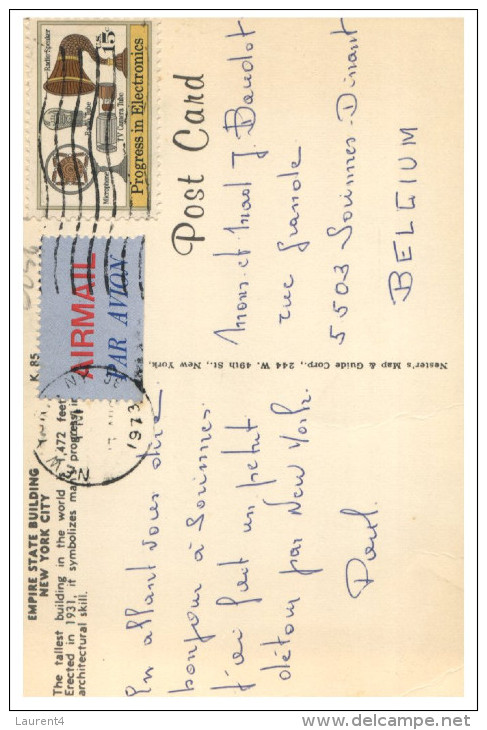 EMPIRE STATE BUILDING
NEW YORK CITY
K. 85
The tallest building in the world is 1,472 feet.
Erected in 1931, it symbolizes many progress in
architectural skill.
En allant vous dire
bonjour à Sorinnes
j'ai fait un petit
détour par New York.
Paul.
Nester's Map & Guide Corp., 244 W. 49th St., New York.
Post Card
AIRMAIL
PAR AVION
1973
Radio Speaker
TV Camera Tube
Microphone
Progress in Electronics
U.S. 15c
Mons et Mad J. Baudot
rue Grande
5503 Sorinnes-Dinant
BELGIUM
Laurent4
www.delcampe.net